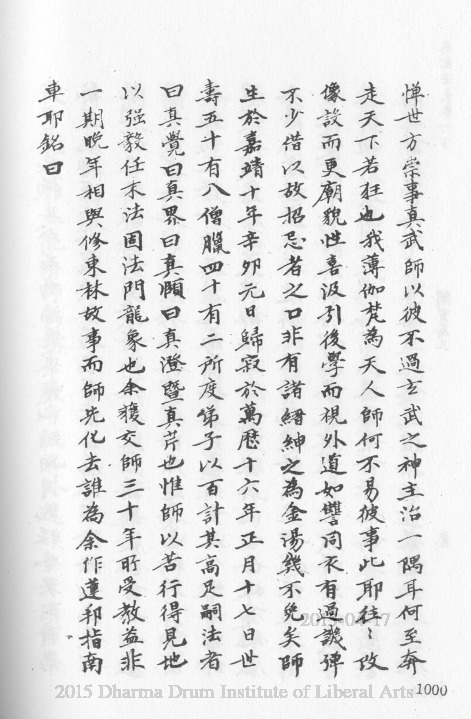 憚世方崇事真武師以彼不過玄武之神主治一隅耳何至奔
走天下若狂也我薄伽梵為天人師何不易彼事此耶往〻改
像設而更廟貌性喜汲引後學而視外道如讐同衣有過譏彈
不少借以故招忌者之口非有諸縉紳之為金湯幾不免矣師
生於嘉靖十年辛卯元日歸寂於萬曆十六年正月十七日世
壽五十有八僧臘四十有二所度弟子以百計其高足嗣法者
曰真覺曰真界曰真願曰真澄暨真芹也惟師以苦行得見地
以强毅任末法固法門龍象也余獲交師三十年所受教益非
一期晚年相與修東林故事而師先化去誰為余作蓮邦指南
車耶銘曰
1000
2015 Dharma Drum Institute of Liberal Arts